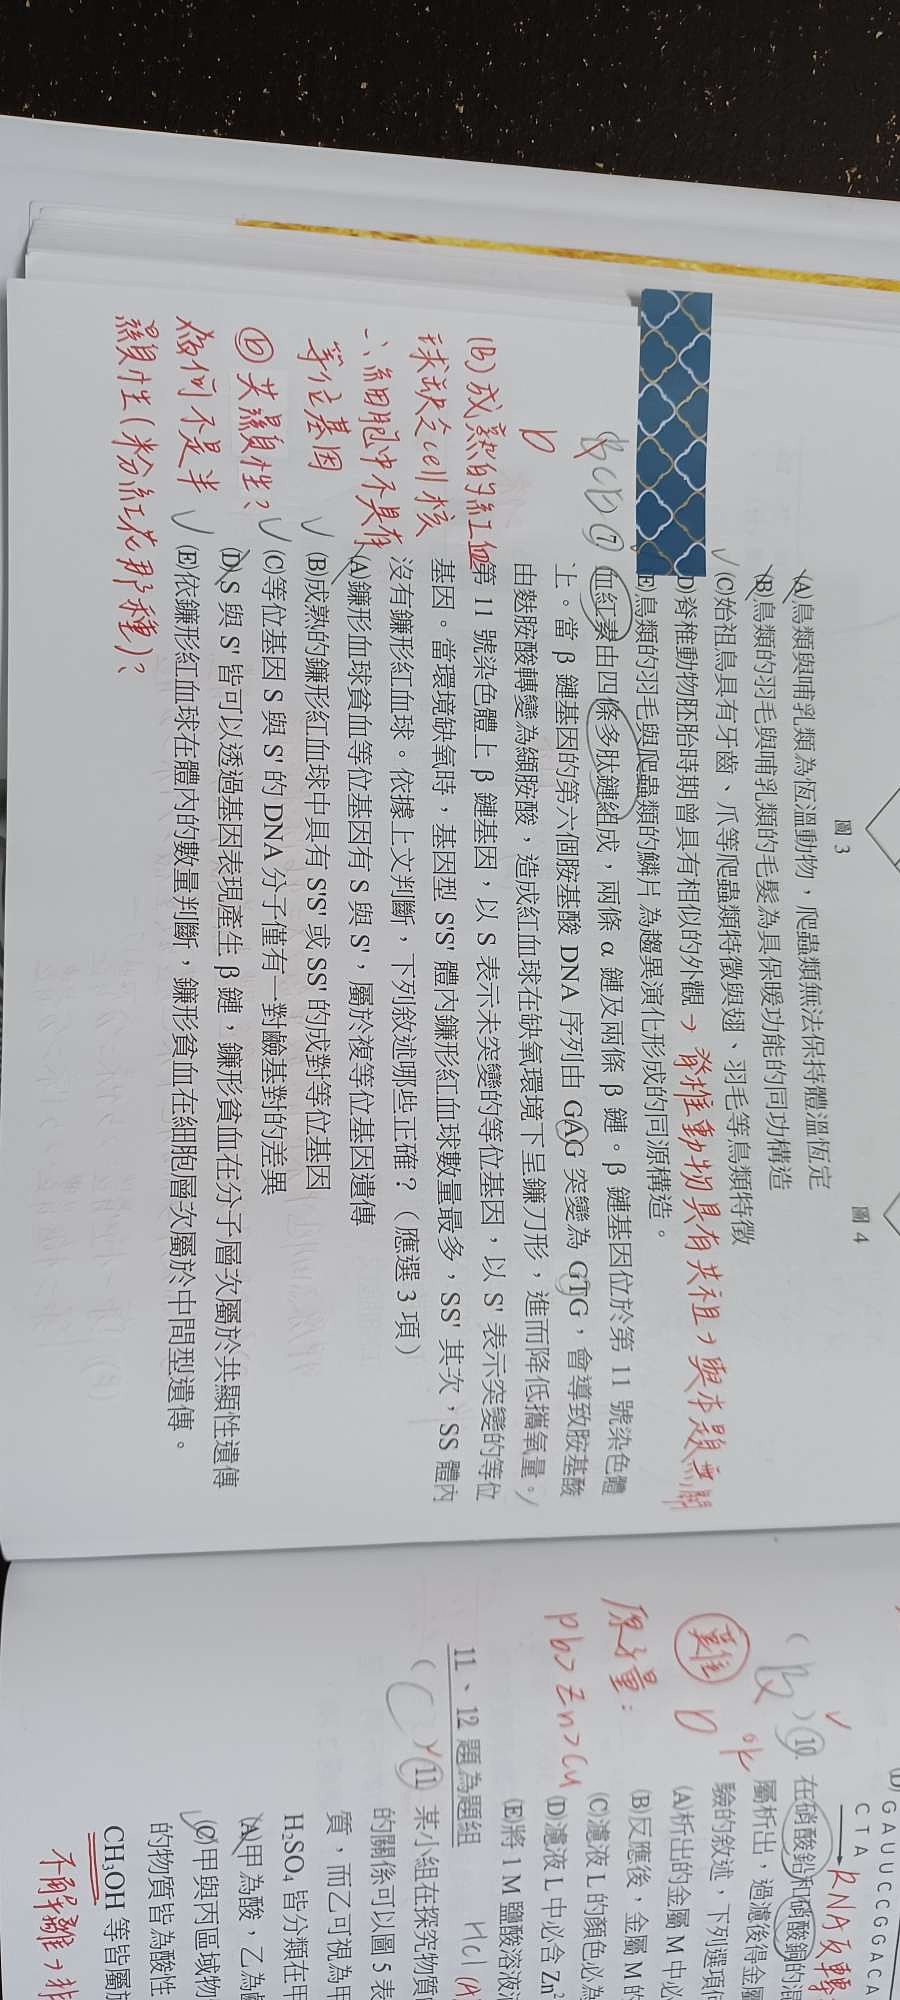 圖 3
圖 4
(A)鳥類與哺乳類為恆溫動物，爬蟲類無法保持體溫恆定
(B)鳥類的羽毛與哺乳類的毛髮為具保暖功能的同功構造
(C)始祖鳥具有牙齒、爪等爬蟲類特徵與翅、羽毛等鳥類特徵
(D)脊椎動物胚胎時期曾具有相似的外觀 → 脊椎動物具有共祖，與本題無關
(E)鳥類的羽毛與爬蟲類的鱗片為趨異演化形成的同源構造。
7 血紅素由四條多肽鏈組成，兩條 α 鏈及兩條 β 鏈。β 鏈基因位於第 11 號染色體
上。當 β 鏈基因的第六個胺基酸 DNA 序列由 GAG 突變為 GTG，會導致胺基酸
D
由麩胺酸轉變為纈胺酸，造成紅血球在缺氧環境下呈鐮刀形，進而降低攜氧量。
第 11 號染色體上 β 鏈基因，以 S 表示未突變的等位基因，以 S' 表示突變的等位
基因。當環境缺氧時，基因型 S'S' 體內鐮形紅血球數量最多，SS' 其次，SS 體內
沒有鐮形紅血球。依據上文判斷，下列敘述哪些正確？（應選 3 項）
(A)鐮形血球貧血等位基因有 S 與 S'，屬於複等位基因遺傳
(B)成熟的鐮形紅血球中具有 S'S' 或 SS' 的成對等位基因
(C)等位基因 S 與 S' 的 DNA 分子僅有一對鹼基對的差異
(D)S 與 S' 皆可以透過基因表現產生 β 鏈，鐮形貧血在分子層次屬於共顯性遺傳
(E)依鐮形紅血球在體內的數量判斷，鐮形貧血在細胞層次屬於中間型遺傳。
(B)成熟的紅血
球缺乏cell核
∴細胞中不具有
等位基因
(D) 共顯性？
為何不是半
顯性(粉紅花那種)？
(D) G A U U C C G G A C A
C T A
RNA反轉
10 在硝酸鉛和硝酸銅的混
屬析出，過濾後得金屬
ok
驗的敘述，下列選項何
難
D
(A)析出的金屬 M 中必
(B)反應後，金屬 M 的
原子量：
(C)濾液 L 的顏色必為
Pb>Zn>Cu
(D)濾液 L 中必含 Zn²
(E)將 1 M 鹽酸溶液
11、12 題為題組
HCl
11 某小組在探究物質
的關係可以圖 5 表
質，而乙可視為甲
H₂SO₄ 皆分類在甲
(A)甲為酸，乙為鹼
(C)甲與丙區域物
的物質皆為酸性
CH₃OH 等皆屬於
不解離，非